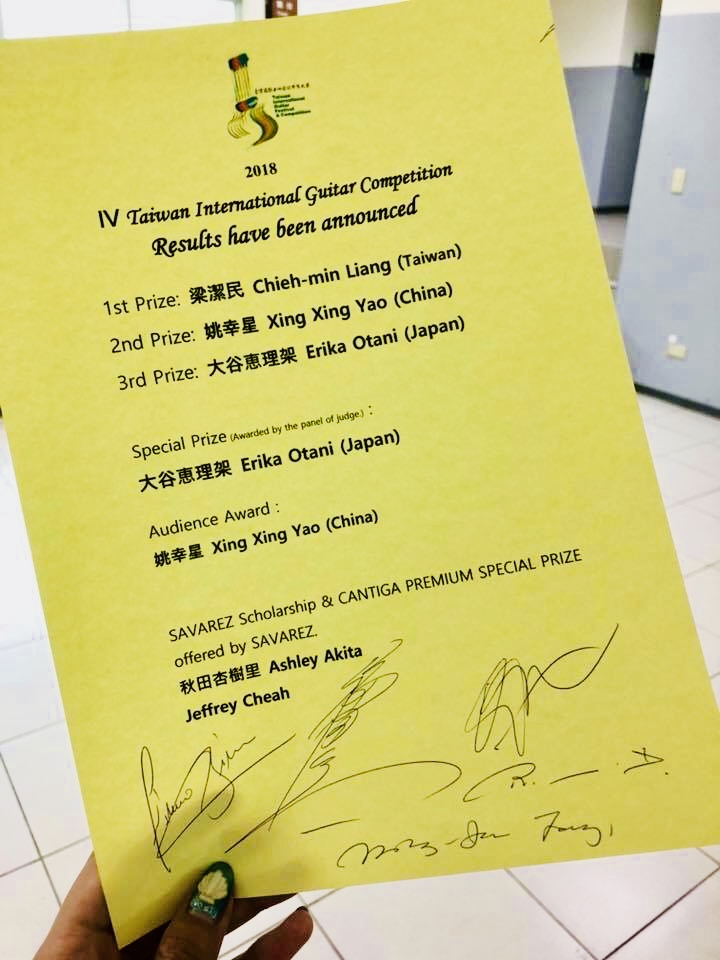 Taiwan
International
Guitar
Festival
& Competition
2018
IV Taiwan International Guitar Competition
Results have been announced
1st Prize: 梁潔民 Chieh-min Liang (Taiwan)
2nd Prize: 姚幸星 Xing Xing Yao (China)
3rd Prize: 大谷恵理架 Erika Otani (Japan)
Special Prize (Awarded by the panel of judge.) :
大谷恵理架 Erika Otani (Japan)
Audience Award :
姚幸星 Xing Xing Yao (China)
SAVAREZ Scholarship & CANTIGA PREMIUM SPECIAL PRIZE
offered by SAVAREZ.
秋田杏樹里 Ashley Akita
Jeffrey Cheah